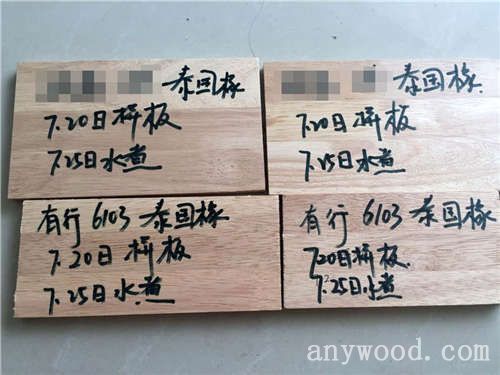 泰国橡
7.20日拼板
7.25日水煮
泰国橡
7.20日拼板
7.25日水煮
有行 6103 泰国橡
7.20日拼板
7.25日水煮
有行 6103 泰国橡
7.20日拼板
7.25日水煮
anywood.com